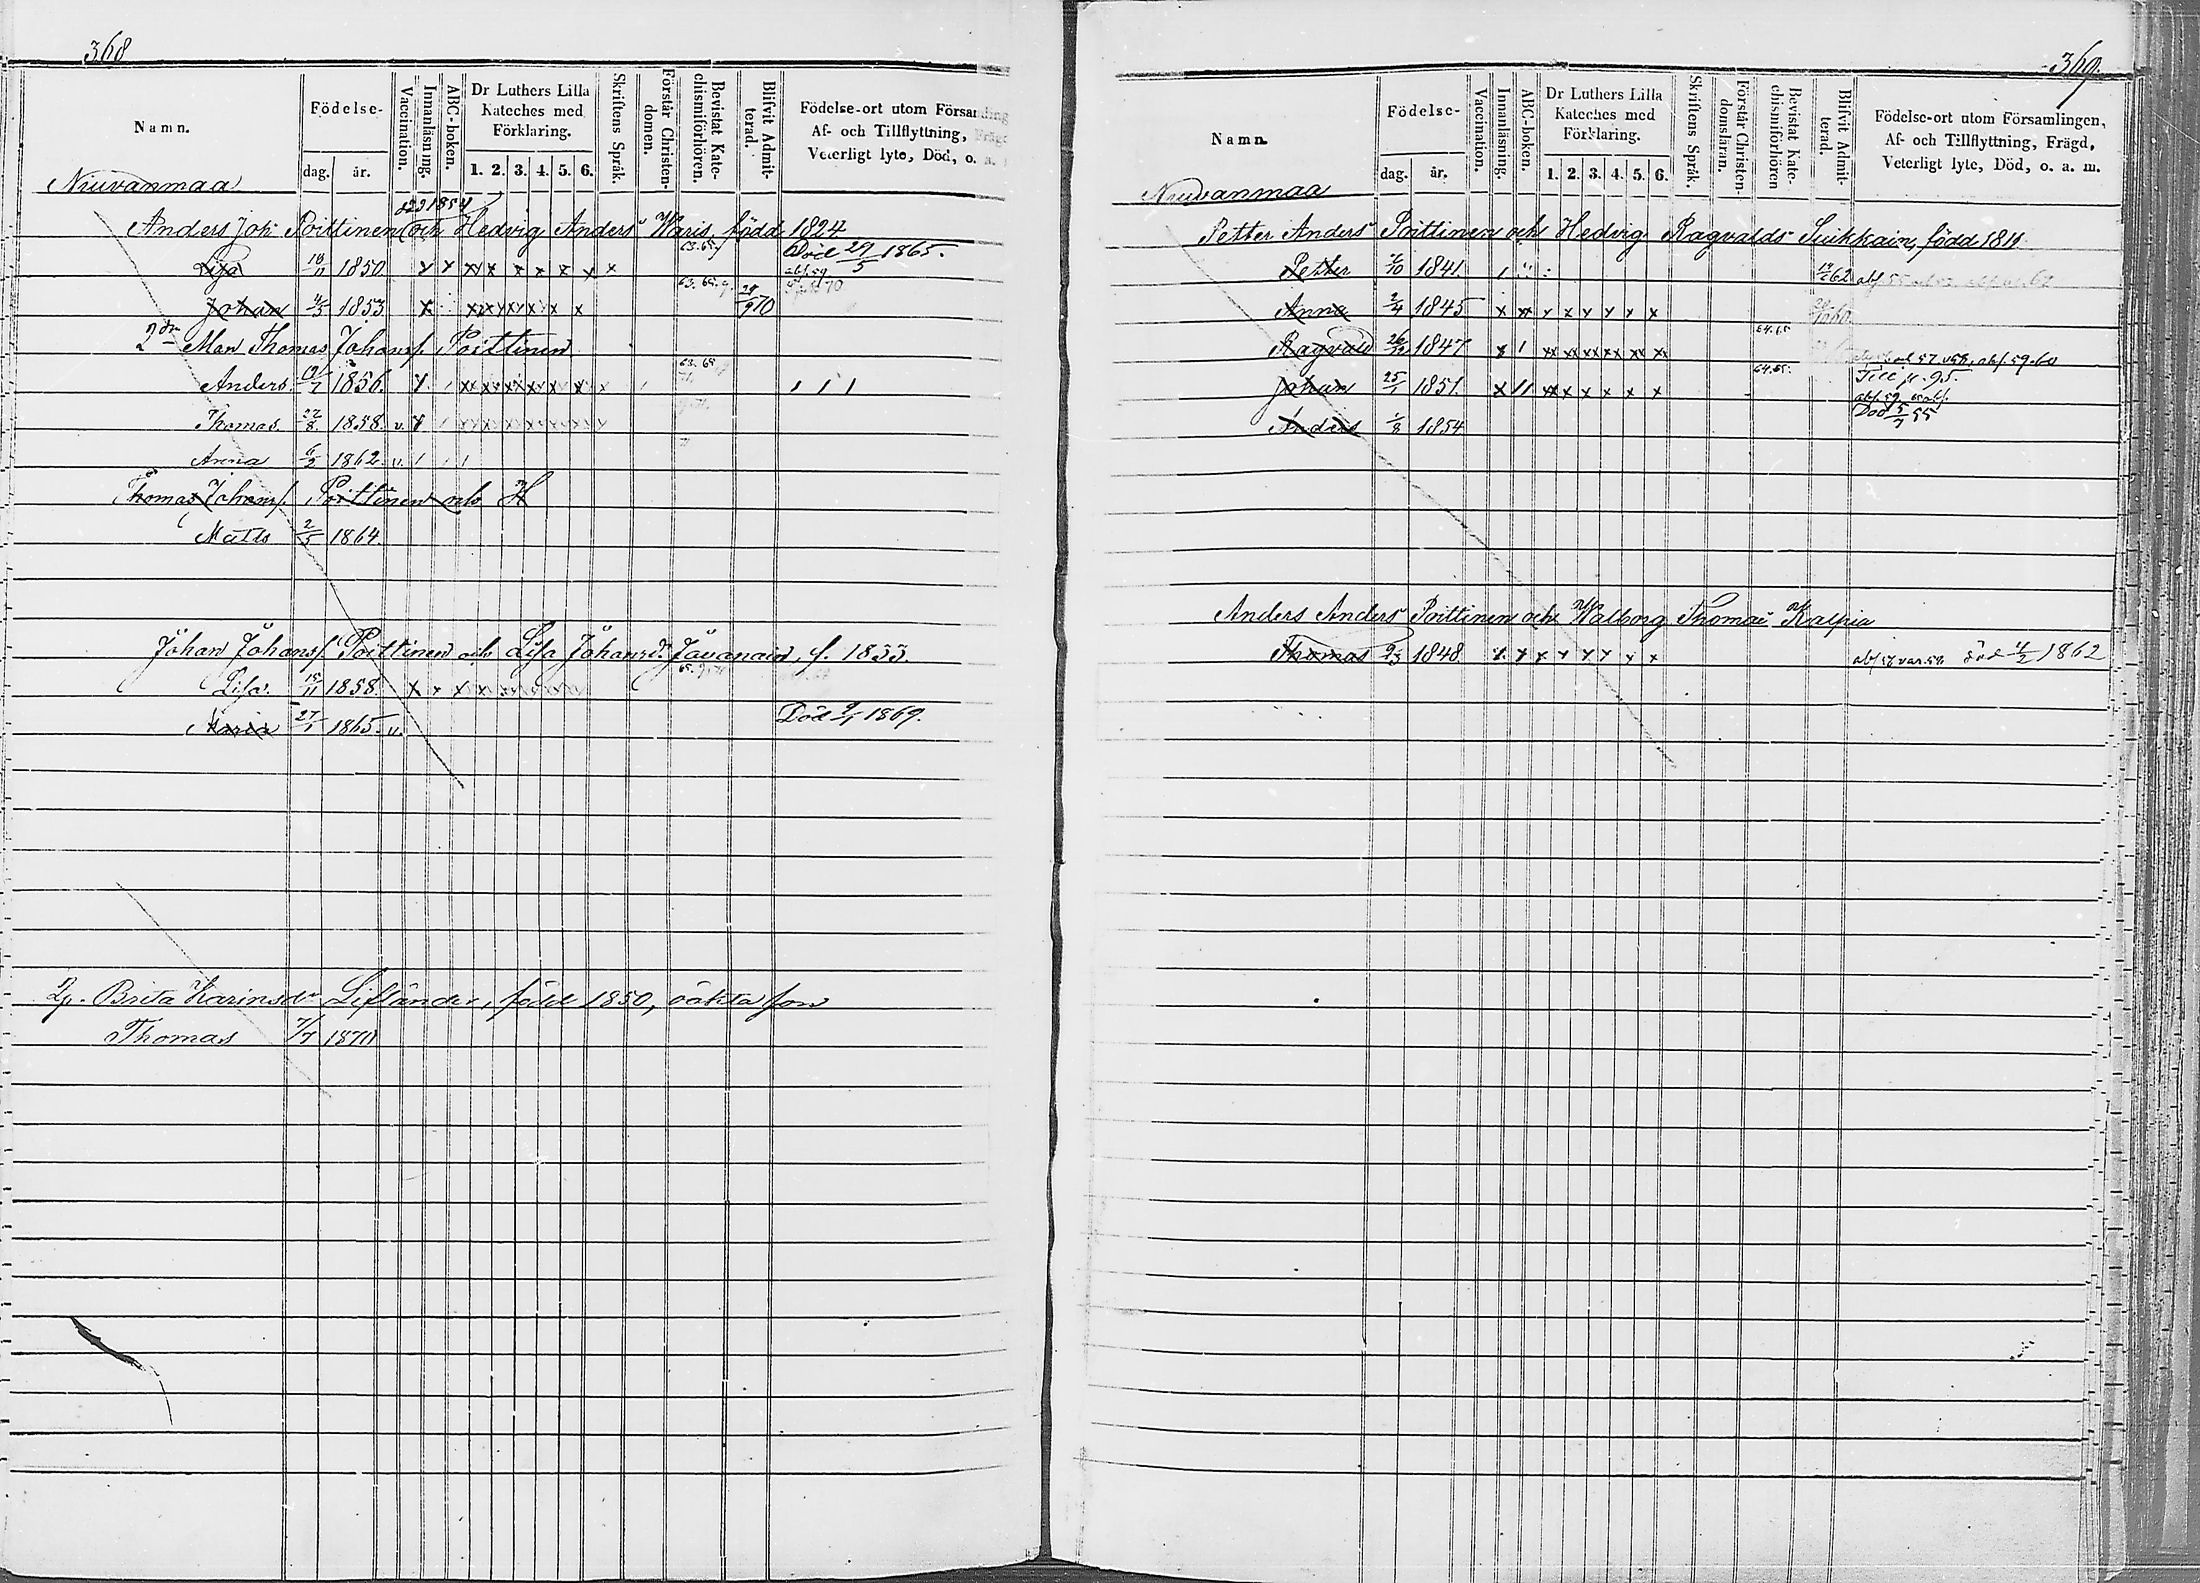 368
Namn.
Födelse-
dag. år.
Vaccination.
Innanläsning.
ABC-boken.
Dr Luthers Lilla Kateches med Förklaring.
1. 2. 3. 4. 5. 6.
Skriftens Språk.
Förstår Christen-domen.
Bevistat Kate-chismiförhören.
Blifvit Admit-terad.
Födelse-ort utom Församling
Af- och Tillflyttning, Fräge
Veterligt lyte, Död, o. a.
Niuvanmaa
1854
Anders Joh: Poittinen och Hedvig Anders Waris, född 1824
Lisa 18/11 1850 63.65. Död 29/5 1865.
Johan 4/5 1853 63.65. 24/9 70
2dra Man Thomas Johanss. Poittinen
Anders 1856. 63.65
Thomas 22/8 1858. v.
Anna 6/2 1862 v.
Thomas Johanss. Poittinen och H
Matts 2/5 1864.
Johan Johanss. Poittinen och Lisa Johansd. Javanain, f. 1833.
Lisa. 15/11 1858. 65.
Maria 27/1 1865. v. Död 9/1 1869.
Brita Karinsdr Lifländer, född 1850, oäkta son
Thomas 7/7 1870
369.
Namn.
Födelse-
dag. år.
Vaccination.
Innanläsning.
ABC-boken.
Dr Luthers Lilla Kateches med Förklaring.
1. 2. 3. 4. 5. 6.
Skriftens Språk.
Förstår Christen-domsläran.
Bevistat Kate-chismiförhören
Blifvit Admit-terad.
Födelse-ort utom Församlingen,
Af- och Tillflyttning, Frägd,
Veterligt lyte, Död, o. a. m.
Niuvanmaa
Petter Anders Poittinen och Hedvig Ragvalds Suikkain, född 1811
Petter 1841 62
Anna 2/4 1845
Ragvald 26/12 1847 64.65
Johan 25/1 1851. 64.65. Till p. 95.
Anders 1/8 1854 Död 5/7 55
Anders Anders Poittinen och Walborg Thomas Kalpia
Thomas 9/3 1848 död 4/2 1862